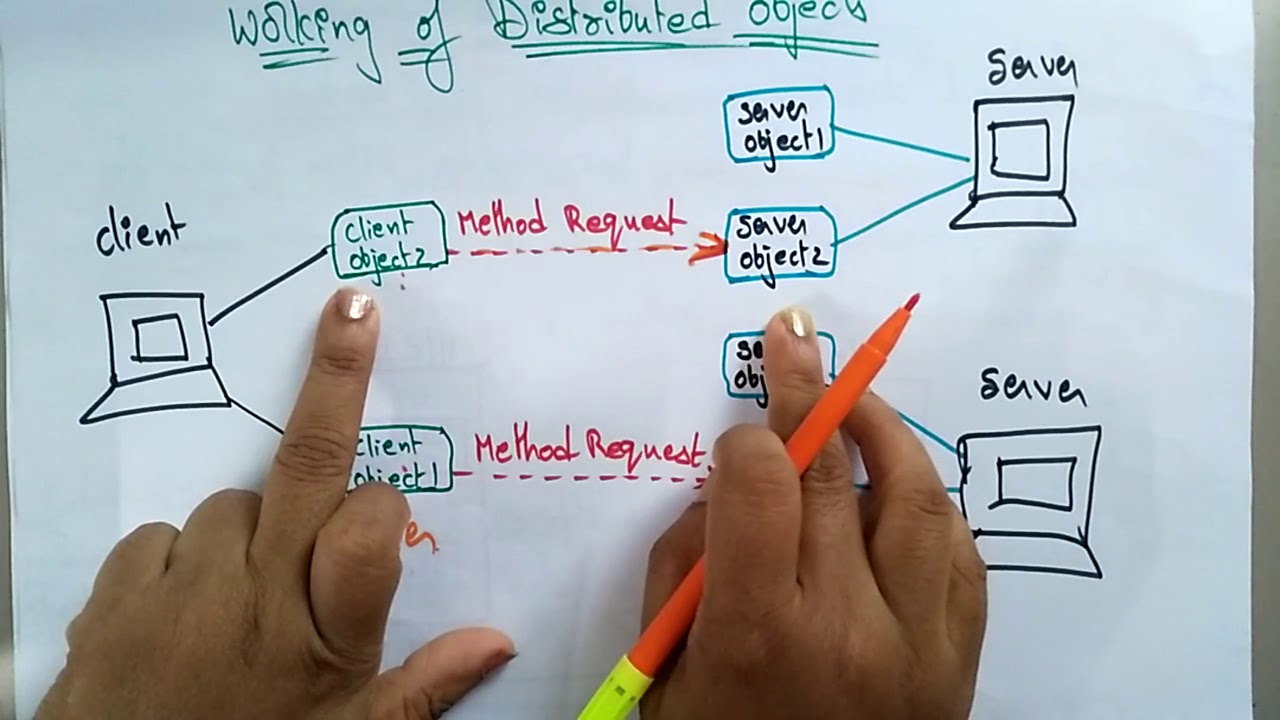 Working of Distributed objects
Server
Server
object1
client
Client
object2
Method Request
Server
object2
Server
Client
object1
Method Request